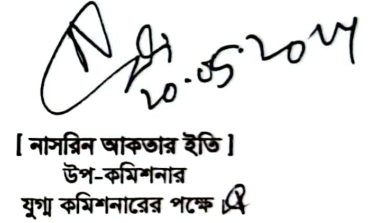 20.05.2024
[ নাসরিন আকতার ইতি ]
উপ-কমিশনার
যুগ্ম কমিশনারের পক্ষে